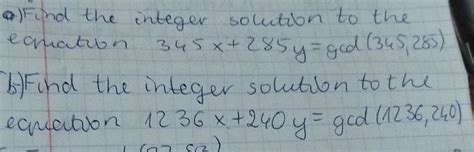 a) Find the integer solution to the
equation 345x+285y=gcd(345,285)
b) Find the integer solution to the
equation 1236x+240y=gcd(1236,240)